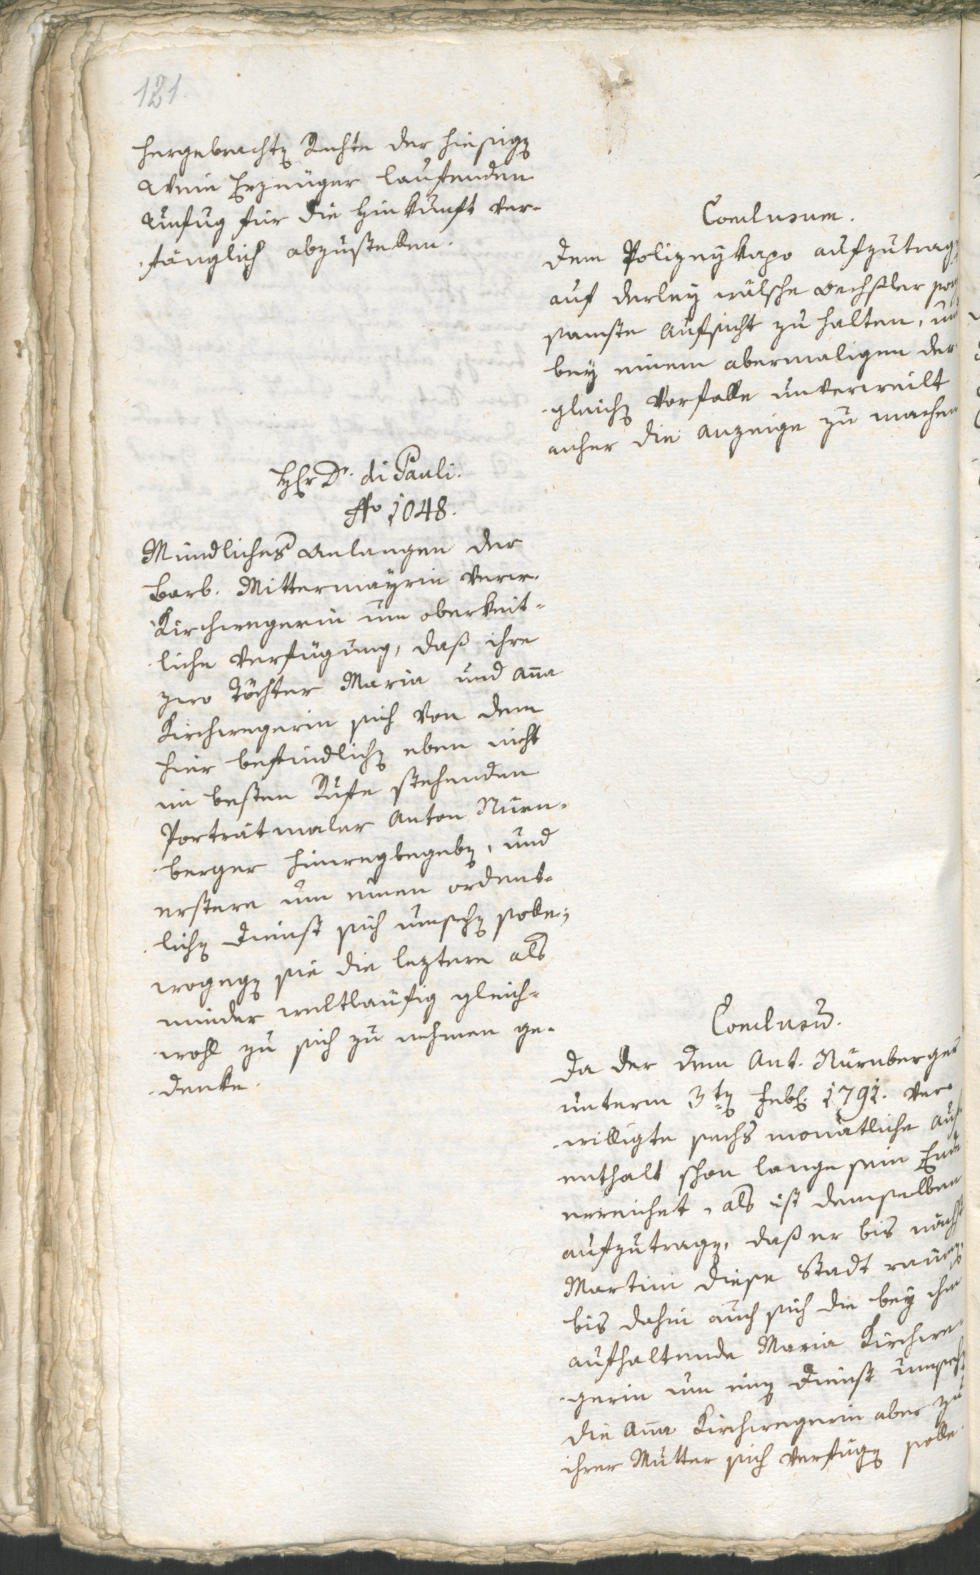 121
hergebrachtẽ Rechte der hiesigẽ
Wein Erzeuger laufenden
Unfug für die Hinkunft ver-
fänglich abzustellen.
Conclusum.
Dem Polizeykapo aufzutragẽ
auf derley wälsche Wechsler
samste Aufsicht zu halten, und
bey einem abermaligen der
gleichẽ Vorfalle unverweilt
anher die Anzeige zu machen
HEr Dr. di Pauli.
No 1048.
Mündliches Anlangen der
Barb. Mittermayrin verw.
Kirchwegerin um oberkeit-
liche Verfügung, daß ihre
zwo Töchter Maria und Aña
Kirchwegerin sich von dem
hier befindlichẽ eben nicht
im besten Rufe stehenden
Porträtmaler Anton Nürn-
berger hinwegbegebẽ, und
erstere um einen ordent-
lichẽ Dienst sich umsehẽ solle,
wogegẽ sie die leztere als
minder weltläufig gleich-
wohl zu sich zu nehmen ge-
denke.
Conclusũ.
Da der dem Ant. Nürnberger
unterm 3tẽ Febr. 1791. ver-
willigte sechs monatliche Auf-
enthalt schon lange sein Ende
erreichet, als ist demselben
aufzutragẽ, daß er bis nächst
Martini diese Stadt raume,
bis dahin auch sich die bey ihm
aufhaltende Maria Kirchwe-
gerin um einẽ Dienst umsehẽ
die Aña Kirchwegerin aber zu
ihrer Mutter sich verfügẽ solle.